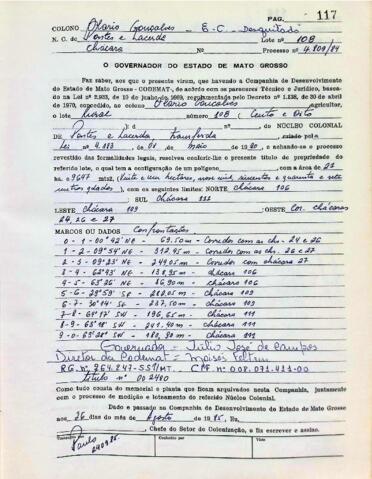 PAG. 117
COLONO Olario Gonçalves - E.C. - Desquitado
N. C. de Pontes e Lacerda Lote nº 108
Chácara Nº Processo nº 4.809/84
O GOVERNADOR DO ESTADO DE MATO GROSSO
Faz saber, aos que o presente virem, que havendo a Companhia de Desenvolvimento
do Estado de Mato Grosso - CODEMAT, de acordo com os pareceres Técnico e Jurídico, basea-
do na Lei nº 2.933, de 13 de junho de 1969, regulamentada pelo Decreto nº 1.138, de 30 de abril
de 1970, expedido, ao colono Olario Gonçalves agricultor,
o lote rural número 108 (Cento e Oito
) do NÚCLEO COLONIAL
DE Pontes e Lacerda, Transferida criado pela
Lei nº 4.183 de 08 de maio de 1980, e achando-se o processo
revestido das formalidades legais, resolveu conferir-lhe o presente título de propriedade
do referido lote, o qual tem a configuração de um polígono com a área de 21
has e 9647 mts2, (vinte e um hectares, nove mil, seiscentos e quarenta e sete
metros qdados), com os seguintes limites: NORTE Chácara 106
; SUL Chácara 111
LESTE Chácara 109 ; OESTE Cor. chácaras
24, 26 e 27
MARCOS OU DADOS Confrontações
0 - 1 - 00º42' NE - 69,50 m - Corredor com as chs. 24 e 26
1 - 2 - 09º54' NE - 312,45 m - Corredor com as chs. 26 e 27
2 - 3 - 09º23' NE - 249,05 m - Corredor com chácara 27
3 - 4 - 62º43' NE - 138,95 m - chácara 106
4 - 5 - 63º26' NE - 86,90 m - chácara 106
5 - 6 - 29º59' SE - 212,05 m - chácara 109
6 - 7 - 30º14' SE - 237,50 m - chácara 109
7 - 8 - 64º17' SW - 196,65 m - chácara 111
8 - 9 - 63º18' SW - 241,40 m - chácara 111
9 - 0 - 63º28' SW - 180,90 m - chácara 111
Governador - Júlio José de Campos
Diretor da Codemat = Moisés Feltrin
RG. nº 764.247-SSP/MT. CPF. nº 008.071.411-00
título nº 002480
Como tudo consta do memorial e planta que ficam arquivados nesta Companhia, juntamente
com o processo de medição e loteamento do referido Núcleo Colonial.
Dado e passado na Companhia de Desenvolvimento do Estado de Mato Grosso
aos 26 dias do mês de Agosto de 1985. Eu,
, Chefe do Setor de Colonização, o fiz escrever e assino.
Conferido por
Paulo